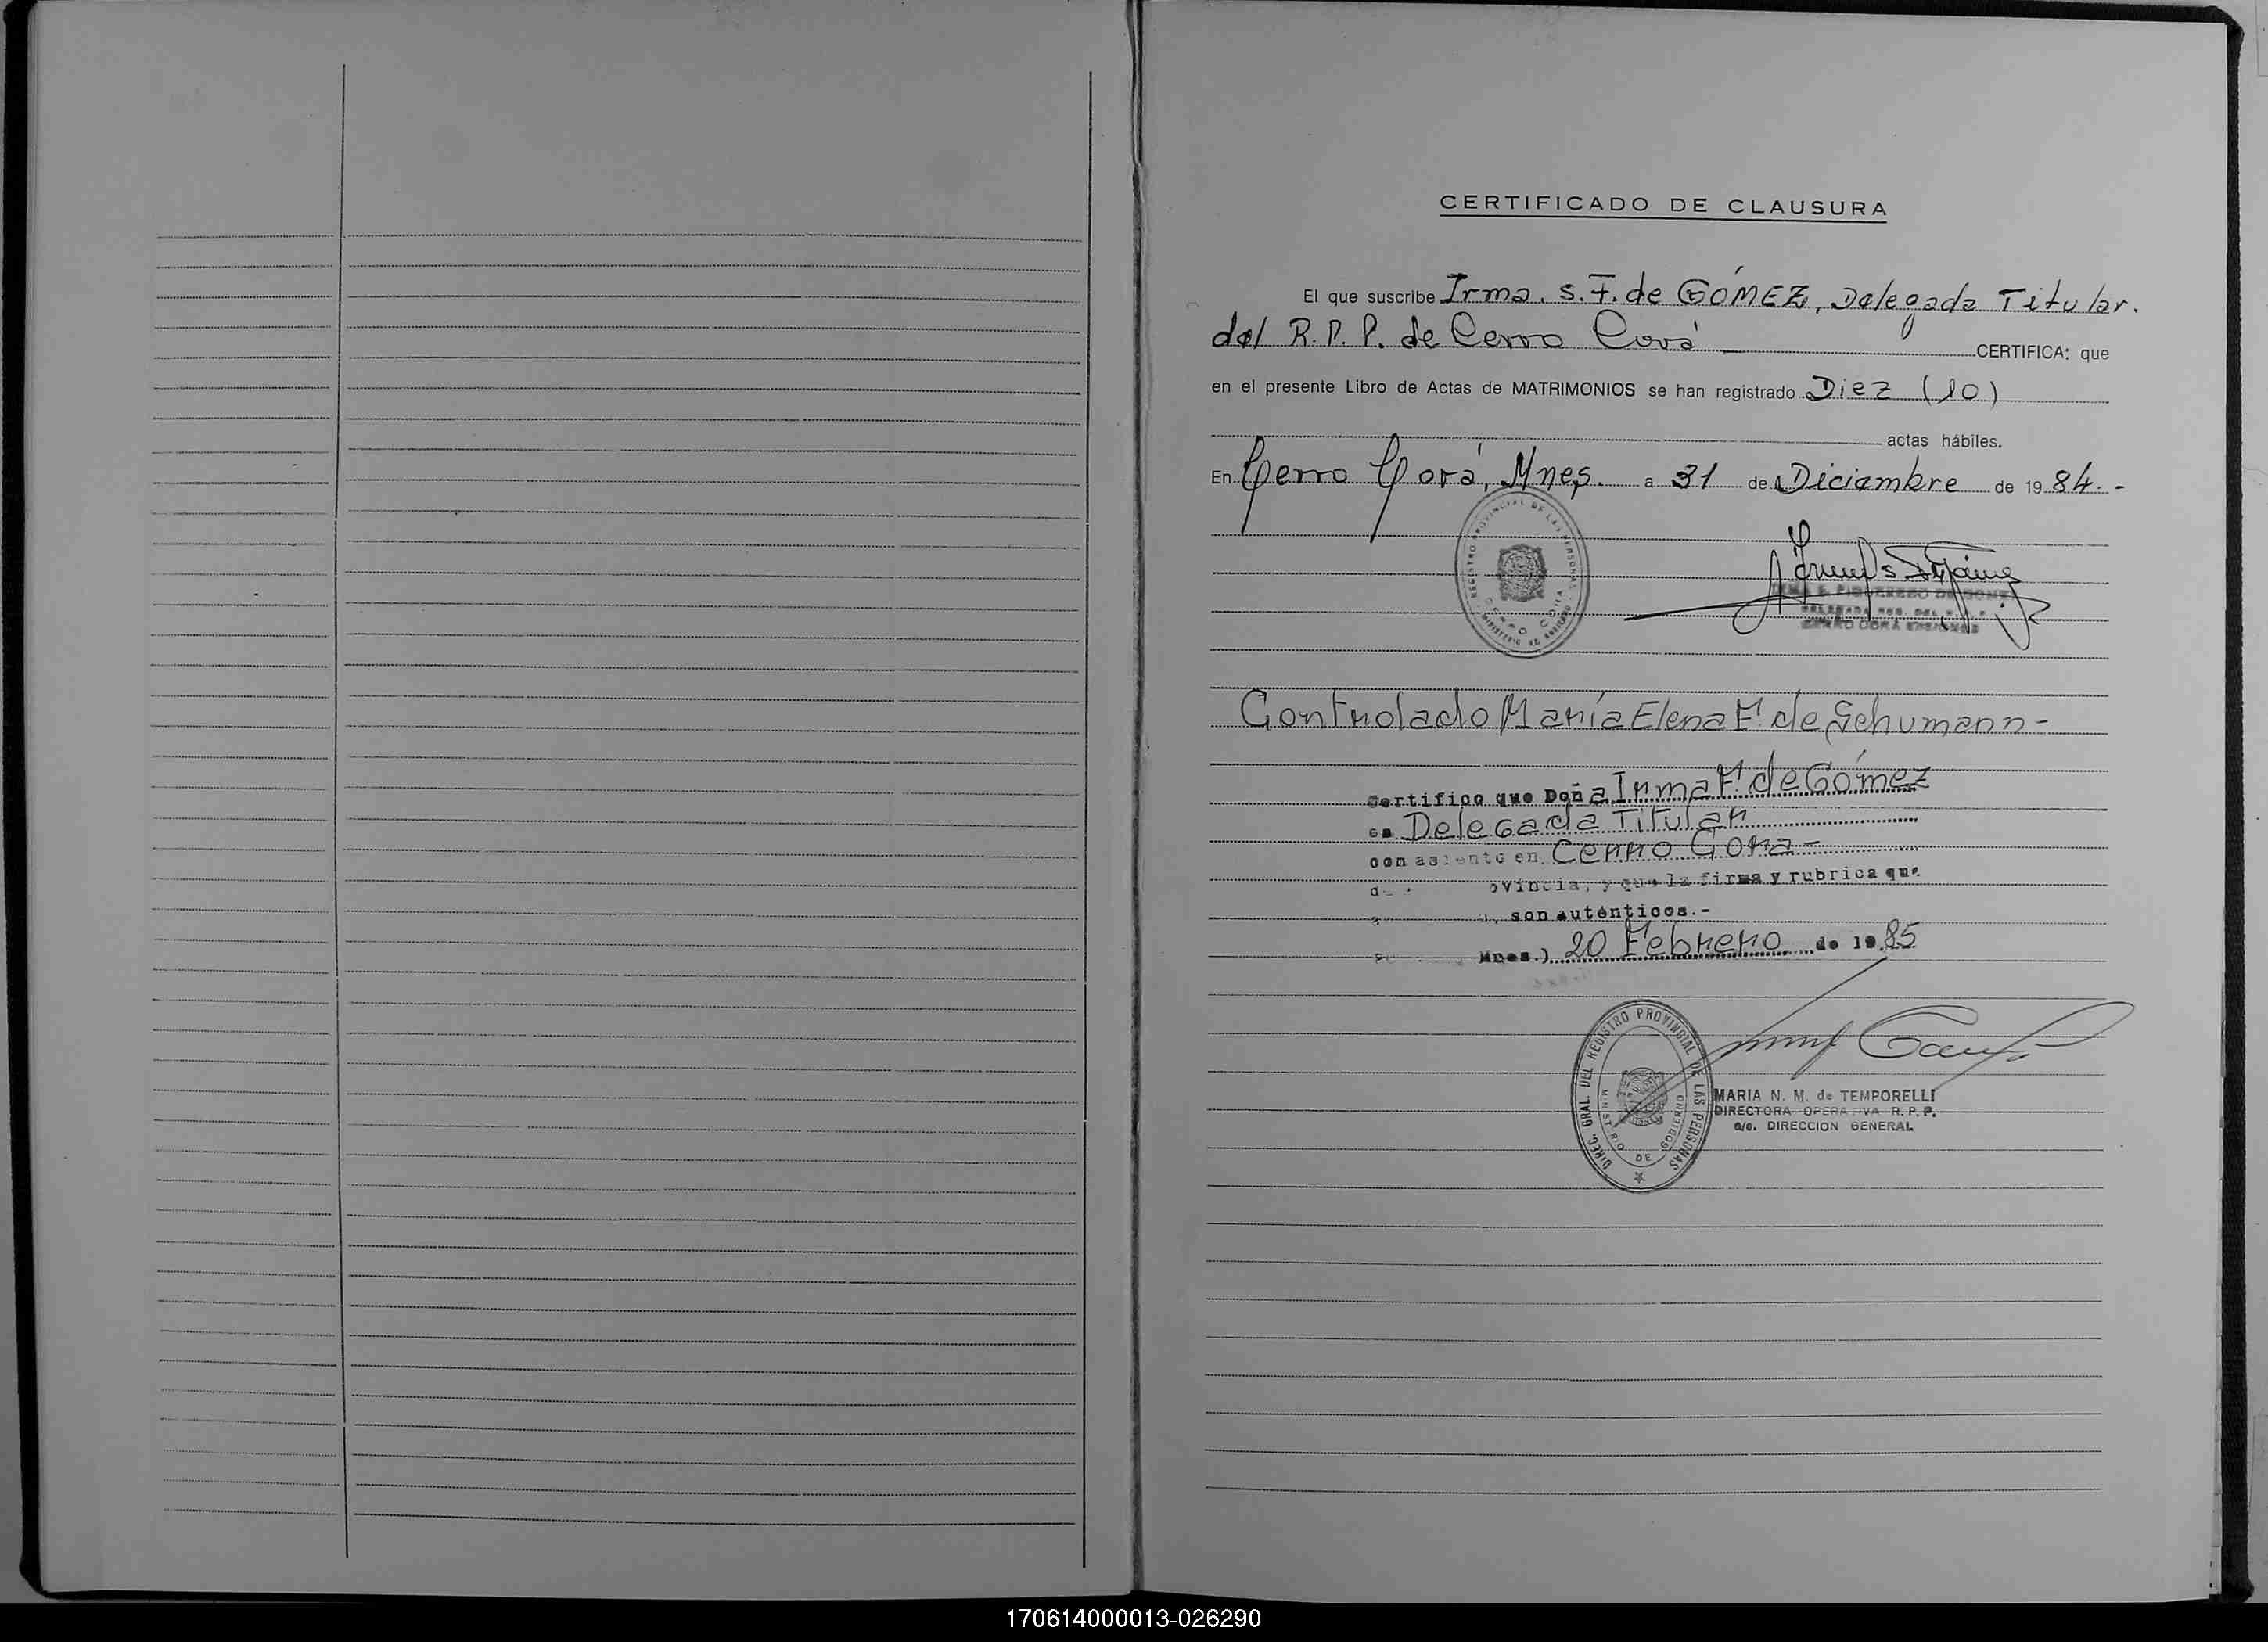 CERTIFICADO DE CLAUSURA
El que suscribe Irma. S. F. de GÓMEZ, Delegada Titular.
del R. P. P. de Cerro Corá CERTIFICA: que
en el presente Libro de Actas de MATRIMONIOS se han registrado Diez (10)
actas hábiles.
En Cerro Corá, Mnes. a 31 de Diciembre de 1984.-
REGISTRO PROVINCIAL DE LAS PERSONAS
CERRO CORA
MINISTERIO DE GOBIERNO
IRMA S. FIGUEREDO DE GOMEZ
CERRO CORA MISIONES
Controlado María Elena F. de Schumann-
Certifico que Doña Irma F. de Gómez
es Delegada Titular
con asiento en Cerro Cora-
ovincia, y que la firma y rubrica que
son auténticos.-
Mnes.) 20 Febrero de 1985
DIREC. GRAL. DEL REGISTRO PROVINCIAL DE LAS PERSONAS
MINISTERIO DE GOBIERNO
MARIA N. M. de TEMPORELLI
DIRECTORA OPERATIVA R. P. P.
a/c. DIRECCION GENERAL
170614000013-026290